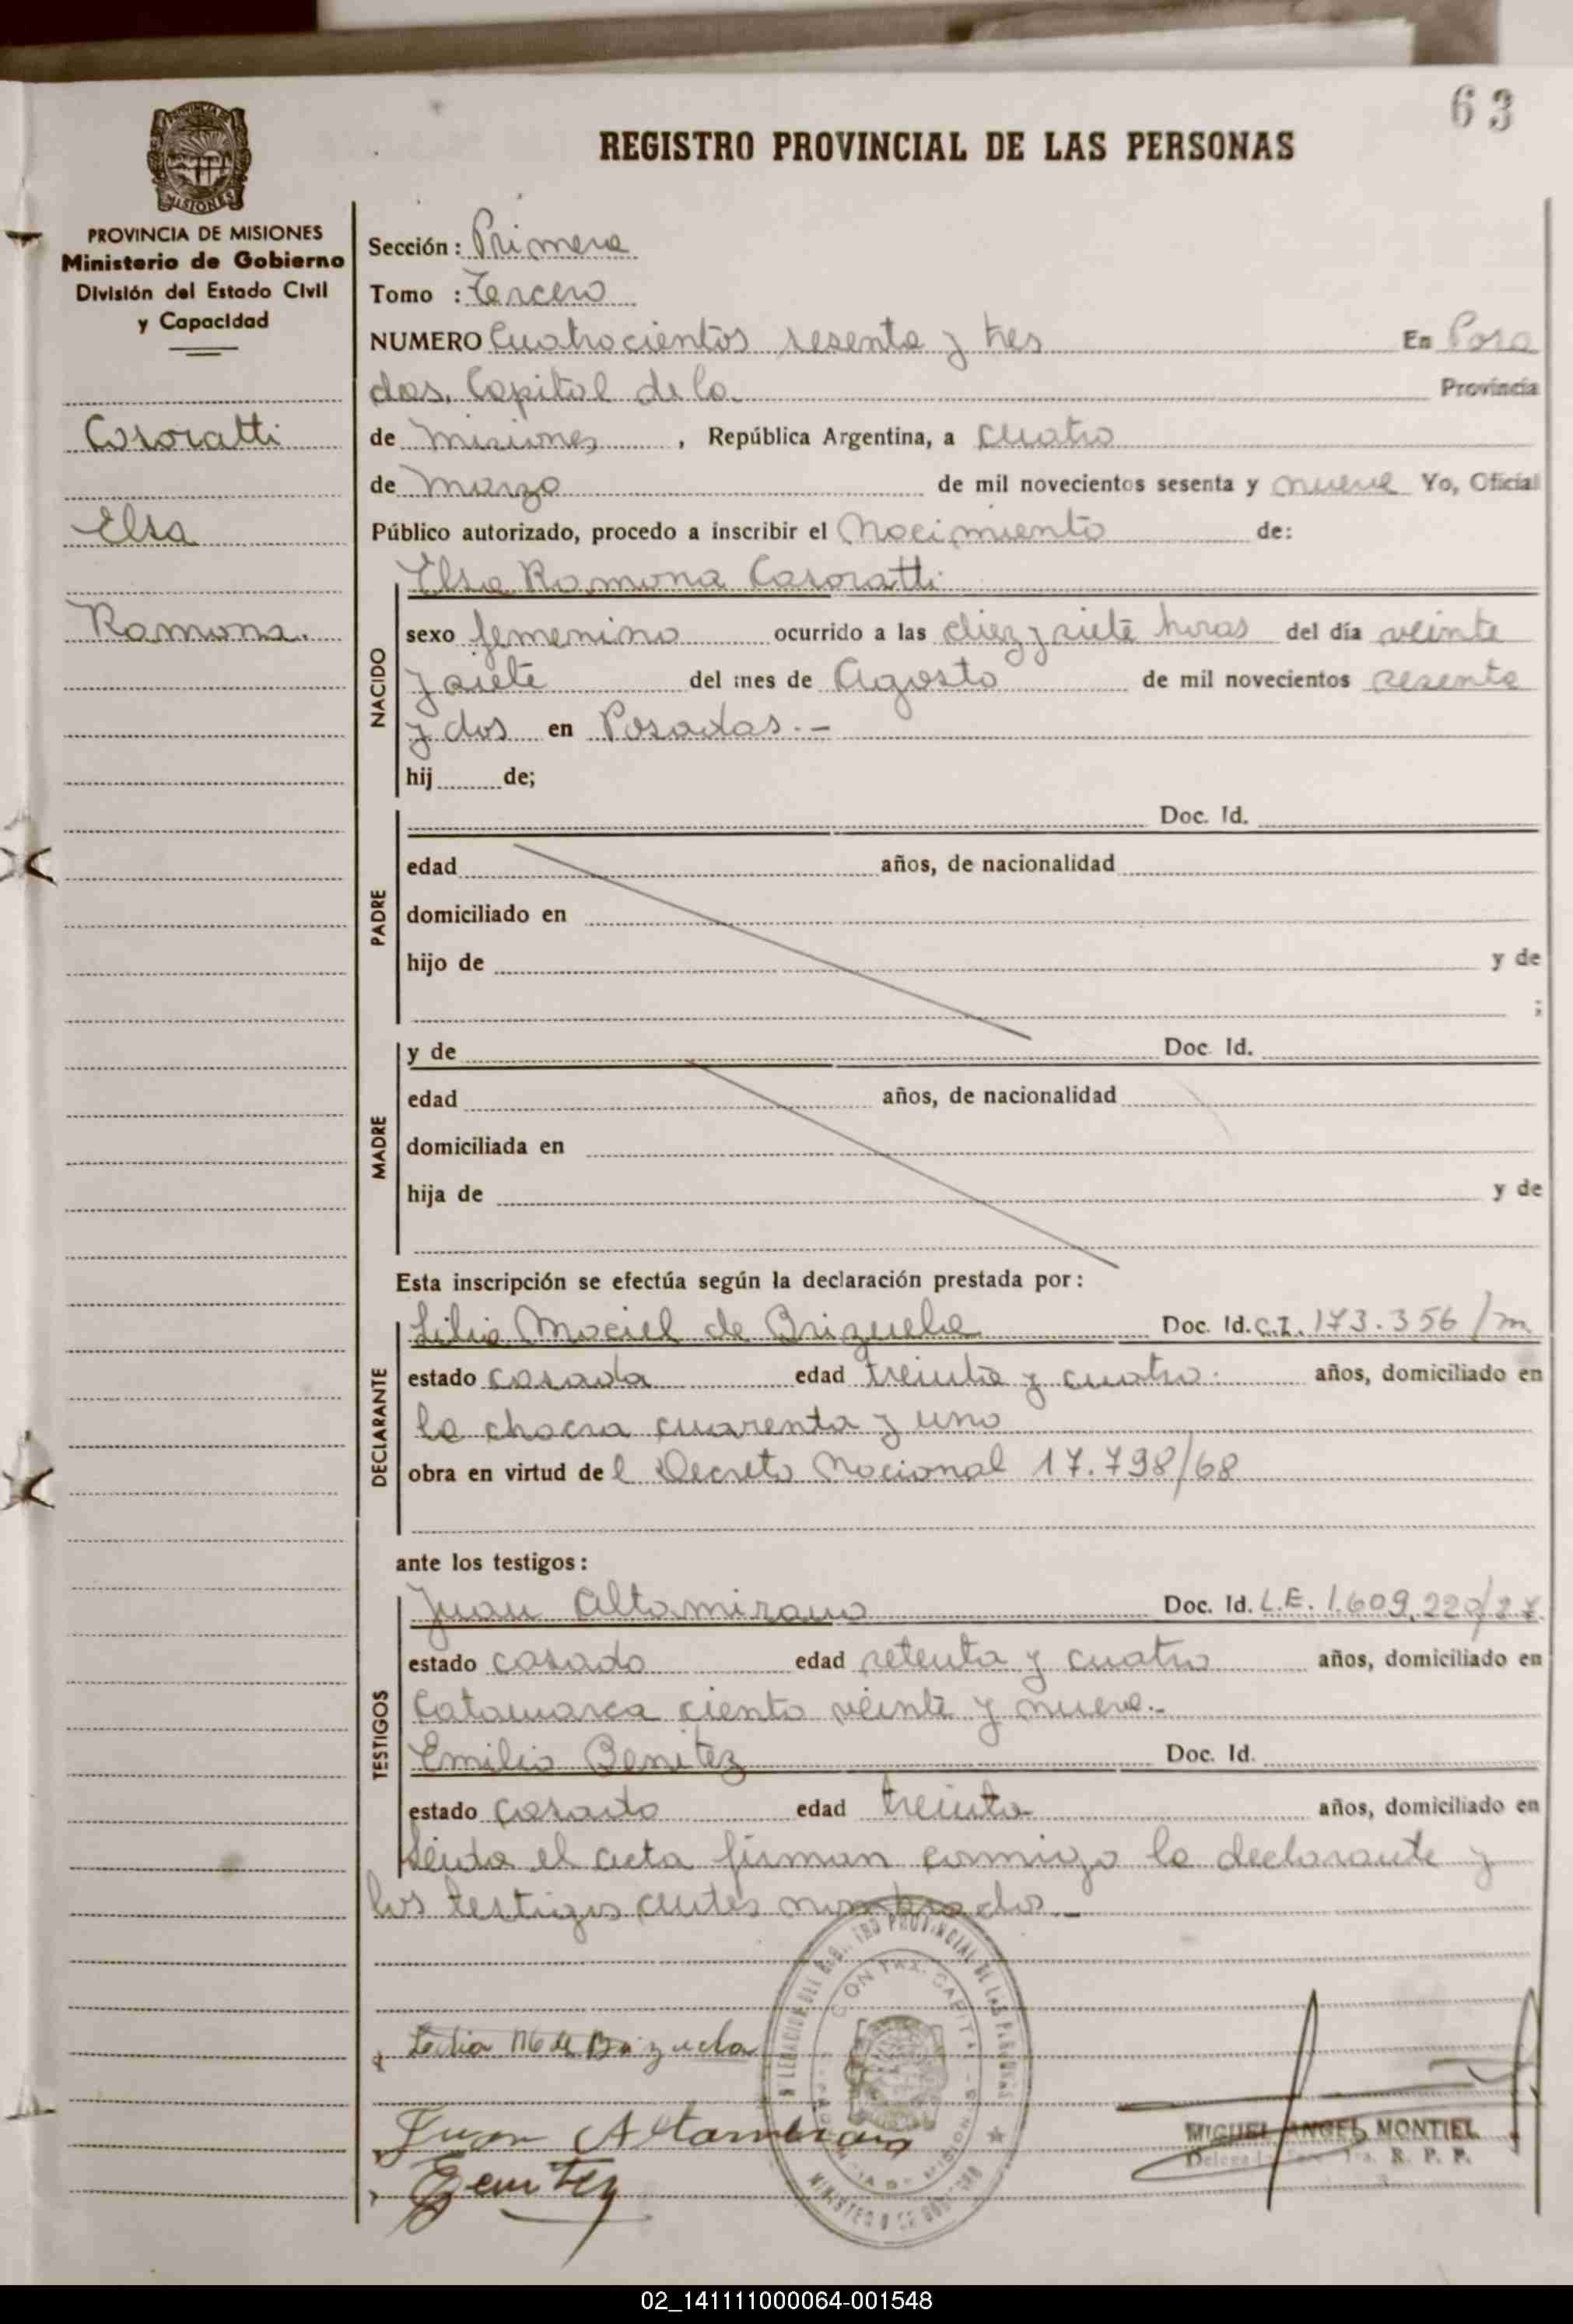 63
REGISTRO PROVINCIAL DE LAS PERSONAS
PROVINCIA DE MISIONES
Ministerio de Gobierno
División del Estado Civil
y Capacidad
Casoratti
Elsa
Ramona.
Sección: Primera
Tomo : Tercero
NUMERO Cuatrocientos sesenta y tres En Posa
das, Capital de la Provincia
de Misiones , República Argentina, a cuatro
de Marzo de mil novecientos sesenta y nueve Yo, Oficial
Público autorizado, procedo a inscribir el Nacimiento de:
NACIDO
Elsa Ramona Casoratti
sexo femenino ocurrido a las diez y siete horas del día veinte
y siete del mes de Agosto de mil novecientos sesenta
y dos en Posadas.-
hij de;
PADRE
Doc. Id.
edad años, de nacionalidad
domiciliado en
hijo de y de
;
MADRE
y de Doc. Id.
edad años, de nacionalidad
domiciliada en
hija de y de
Esta inscripción se efectúa según la declaración prestada por:
DECLARANTE
Lilia Maciel de Brizuela Doc. Id. C.I. 173.356/m
estado casada edad treinta y cuatro. años, domiciliado en
la chacra cuarenta y uno
obra en virtud de l Decreto Nacional 17.798/68
ante los testigos:
TESTIGOS
Juan Altamirano Doc. Id. L.E. 1.609.220/
estado casado edad setenta y cuatro años, domiciliado en
Catamarca ciento veinte y nueve.-
Emilio Benitez Doc. Id.
estado casado edad treinta años, domiciliado en
Leida el acta firman conmigo la declarante y
los testigos antes nombrados.-
Lilia M de Brizuela
Juan Altamirano
EBenitez
MIGUEL ANGEL MONTIEL
R. P. P.
02_141111000064-001548